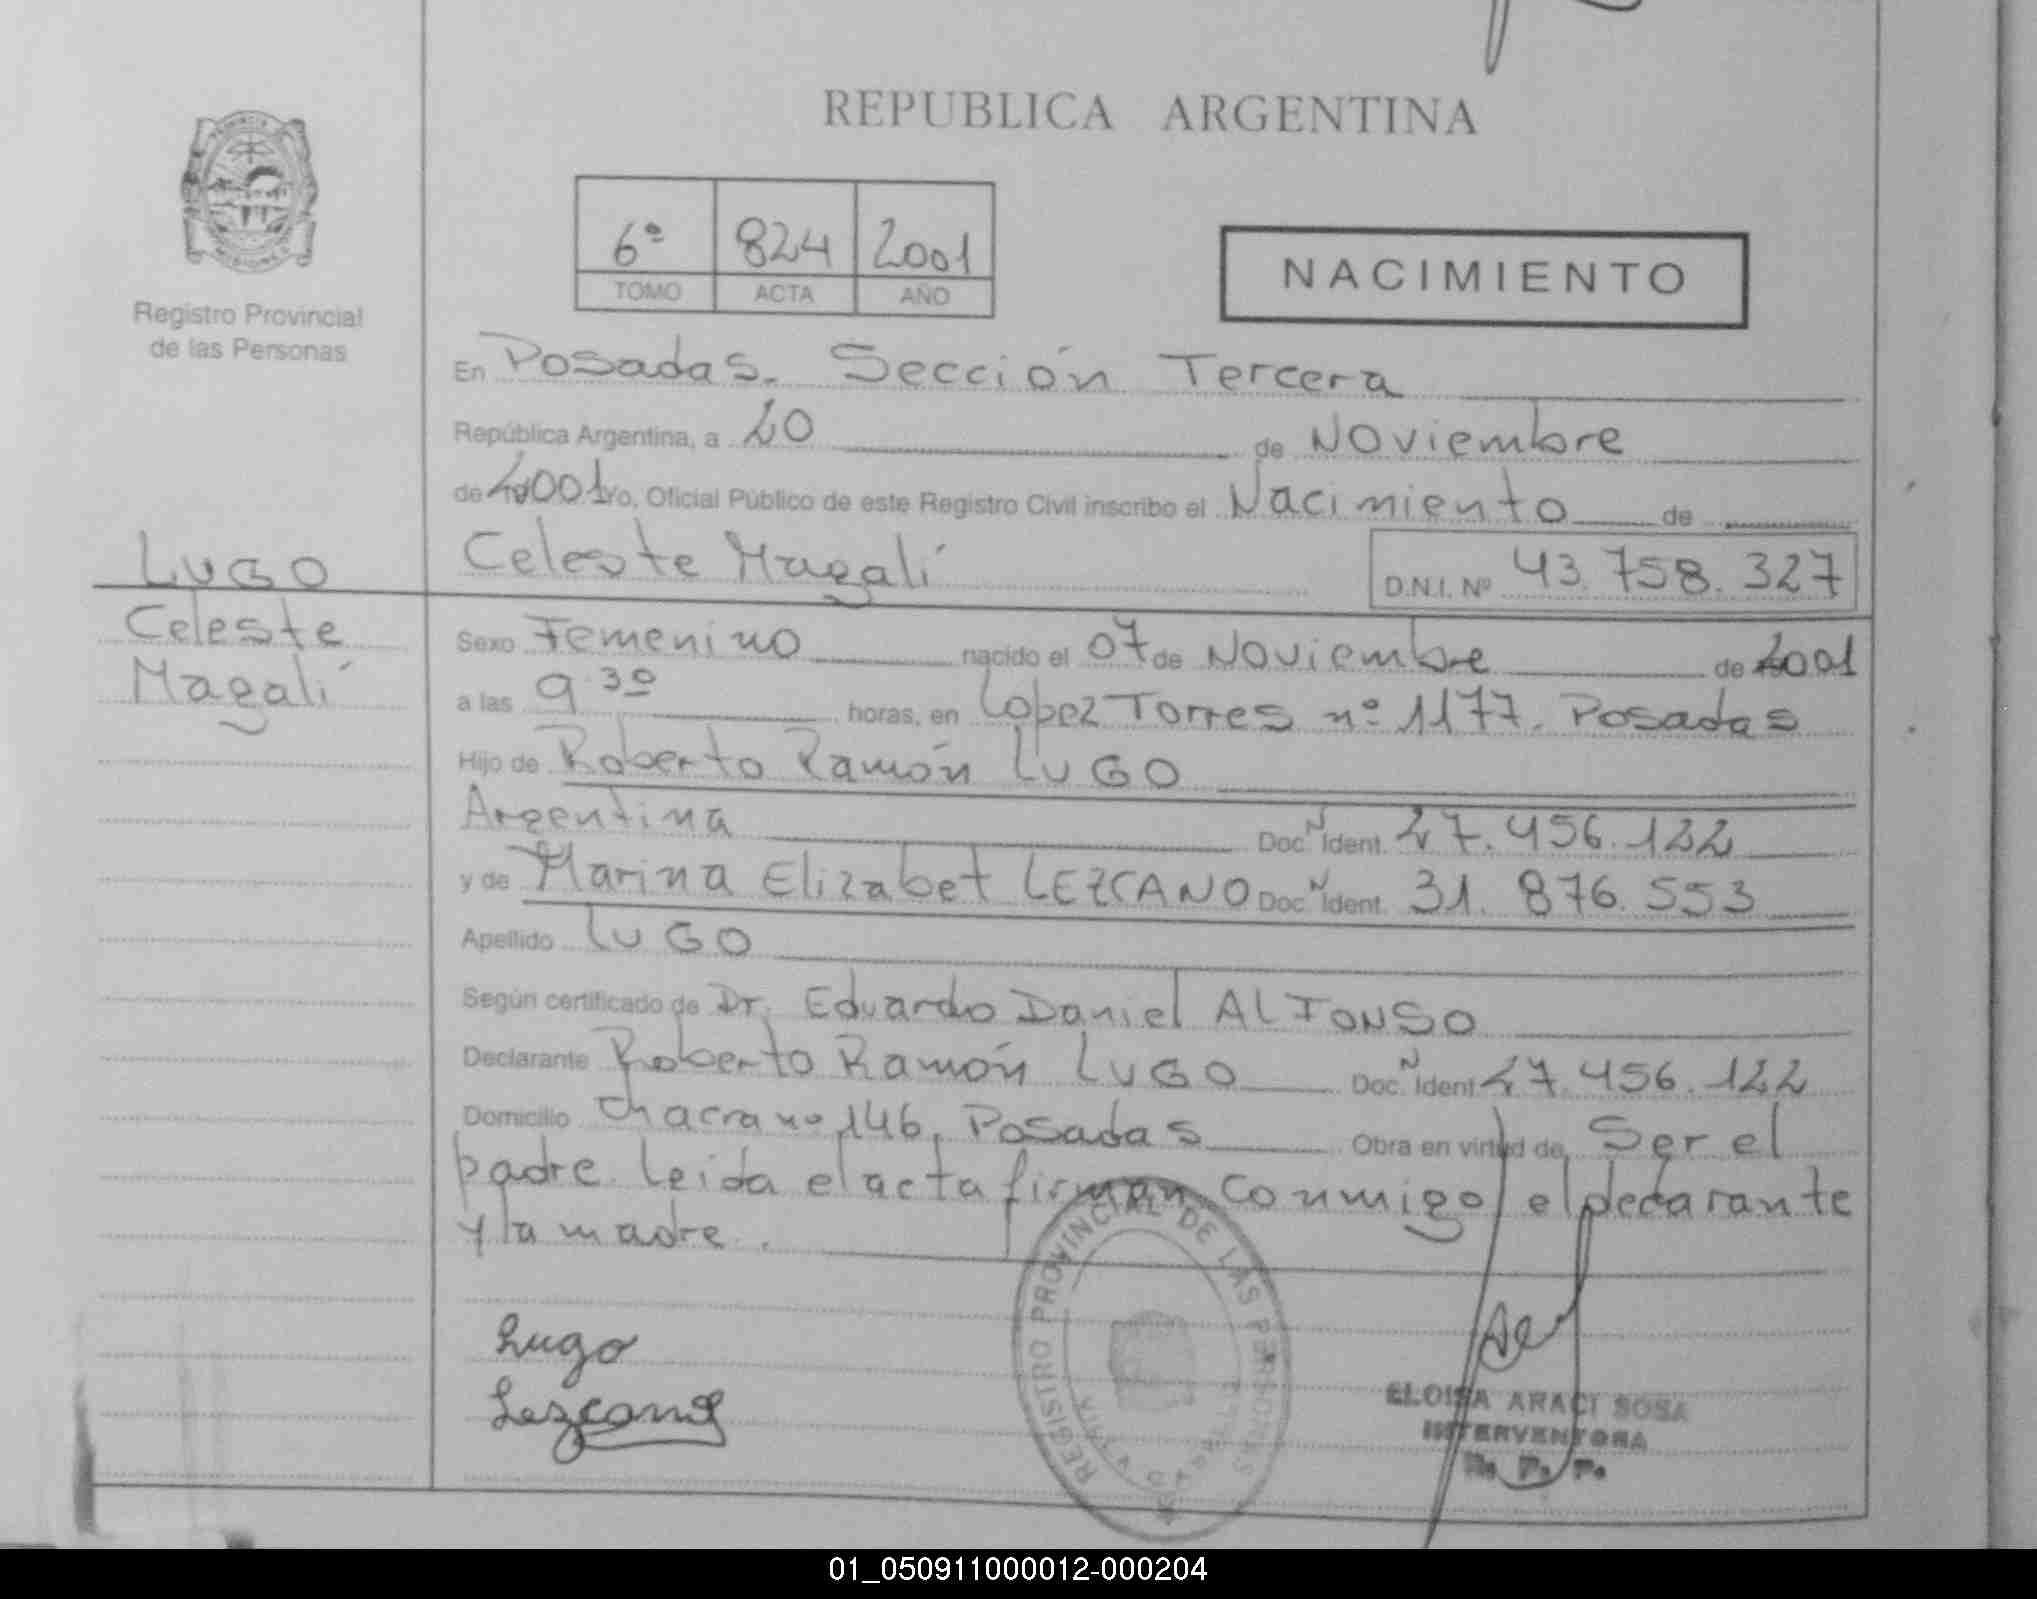 REPUBLICA ARGENTINA
Registro Provincial
de las Personas
6º 824 2001
TOMO ACTA AÑO
NACIMIENTO
En Posadas. Sección Tercera
República Argentina, a 20 de Noviembre
de 2001 Yo, Oficial Público de este Registro Civil inscribo el Nacimiento de
Celeste Magalí D.N.I. Nº 43.758.327
LUGO
Celeste
Magalí
Sexo Femenino nacido el 07 de Noviembre de 2001
a las 9 30 horas, en Lopez Torres nº 1177. Posadas
Hijo de Roberto Ramón LUGO
Argentina Doc. N Ident. 27.456.122
y de Marina Elizabet LEZCANO Doc. N Ident. 31.876.553
Apellido LUGO
Según certificado de Dr. Eduardo Daniel ALFONSO
Declarante Roberto Ramón LUGO Doc. N Ident 27.456.122
Domicilio Chacra nº 146, Posadas Obra en virtud de Ser el
padre. Leida el acta firman conmigo el declarante
y la madre.
Lugo
Lezcano
REGISTRO PROVINCIAL DE LAS PERSONAS
ELOISA ARACI SOSA
INTERVENTORA
01_050911000012-000204